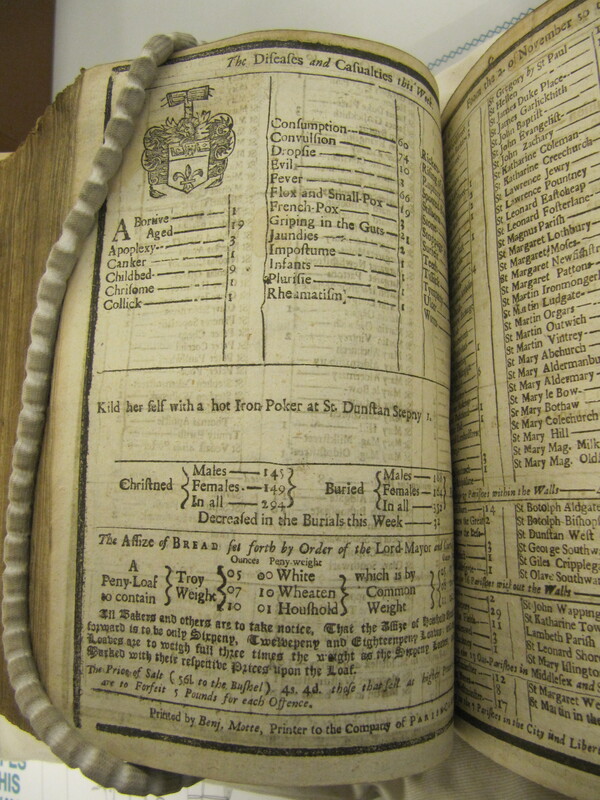 The Diseases and Casualties this Week
ABortive — 1
Aged — 19
Apoplexy — 3
Canker — 1
Childbed — 9
Chrisome — 1
Collick — 1
Consumption — 60
Convulsion — 74
Dropsie — 10
Evil
Fever
Flox and Small-Pox — 66
French-Pox — 19
Griping in the Guts — 21
Jaundies
Impostume
Infants
Plurisie
Rheumatism
Kild her self with a hot Iron Poker at St. Dunstan Stepny 1.
Christned { Males — 145 Females — 149 In all — 294 }
Buried { Males Females In all
Decreased in the Burials this Week
The Assize of BREAD set forth by Order of the Lord Mayor and
Ounces Peny-weight
A Peny-Loaf to contain } Troy Weight
05 00 White
07 10 Wheaten
10 01 Houshold
which is by Common Weight
All Bakers and others are to take notice, That the Assize of
forward is to be only Sixpeny, Twelvepeny and Eighteenpeny
Loaves are to weigh full three times the weight as the Sixpeny
Marked with their respective Prizes upon the Loaf.
The Price of Salt (56l. to the Bushel) 4s. 4d. those that sell at higher
are to Forfeit 5 Pounds for each Offence.
Printed by Benj. Motte, Printer to the Company of
From the 2. of November to
St Gregory by St Paul
St Hellen
St James Duke Place
St James Garlickhith
St John Baptist
St John Evangelist
St John Zachary
St Katharine Coleman
St Katharine Creechurch
St Lawrence Jewry
St Lawrence Pountney
St Leonard Eastcheap
St Leonard Fosterlane
St Magnus Parish
St Margaret Lothbury
St Margaret Moses
St Margaret Newfishstr
St Margaret Pattons
St Martin Ironmonger
St Martin Ludgate
St Martin Orgars
St Martin Outwich
St Martin Vintrey
St Mary Abchurch
St Mary Aldermanbu
St Mary Aldermary
St Mary le Bow
St Mary Bothaw
St Mary Colechurch
St Mary Hill
St Mary Mag. Milk
St Mary Mag. Old
Parishes within the Walls
St Botolph Aldgate
St Botolph Bishop
St Dunstan West
St George Southw
St Giles Cripplega
St Olave Southwa
Parishes without the Walls
St John Wapping
St Katharine Tow
Lambeth Parish
St Leonard Shor
St Mary Islington
Out-Parishes in Middlesex and
St Margaret We
St Martin in the
Parishes in the City and Liber